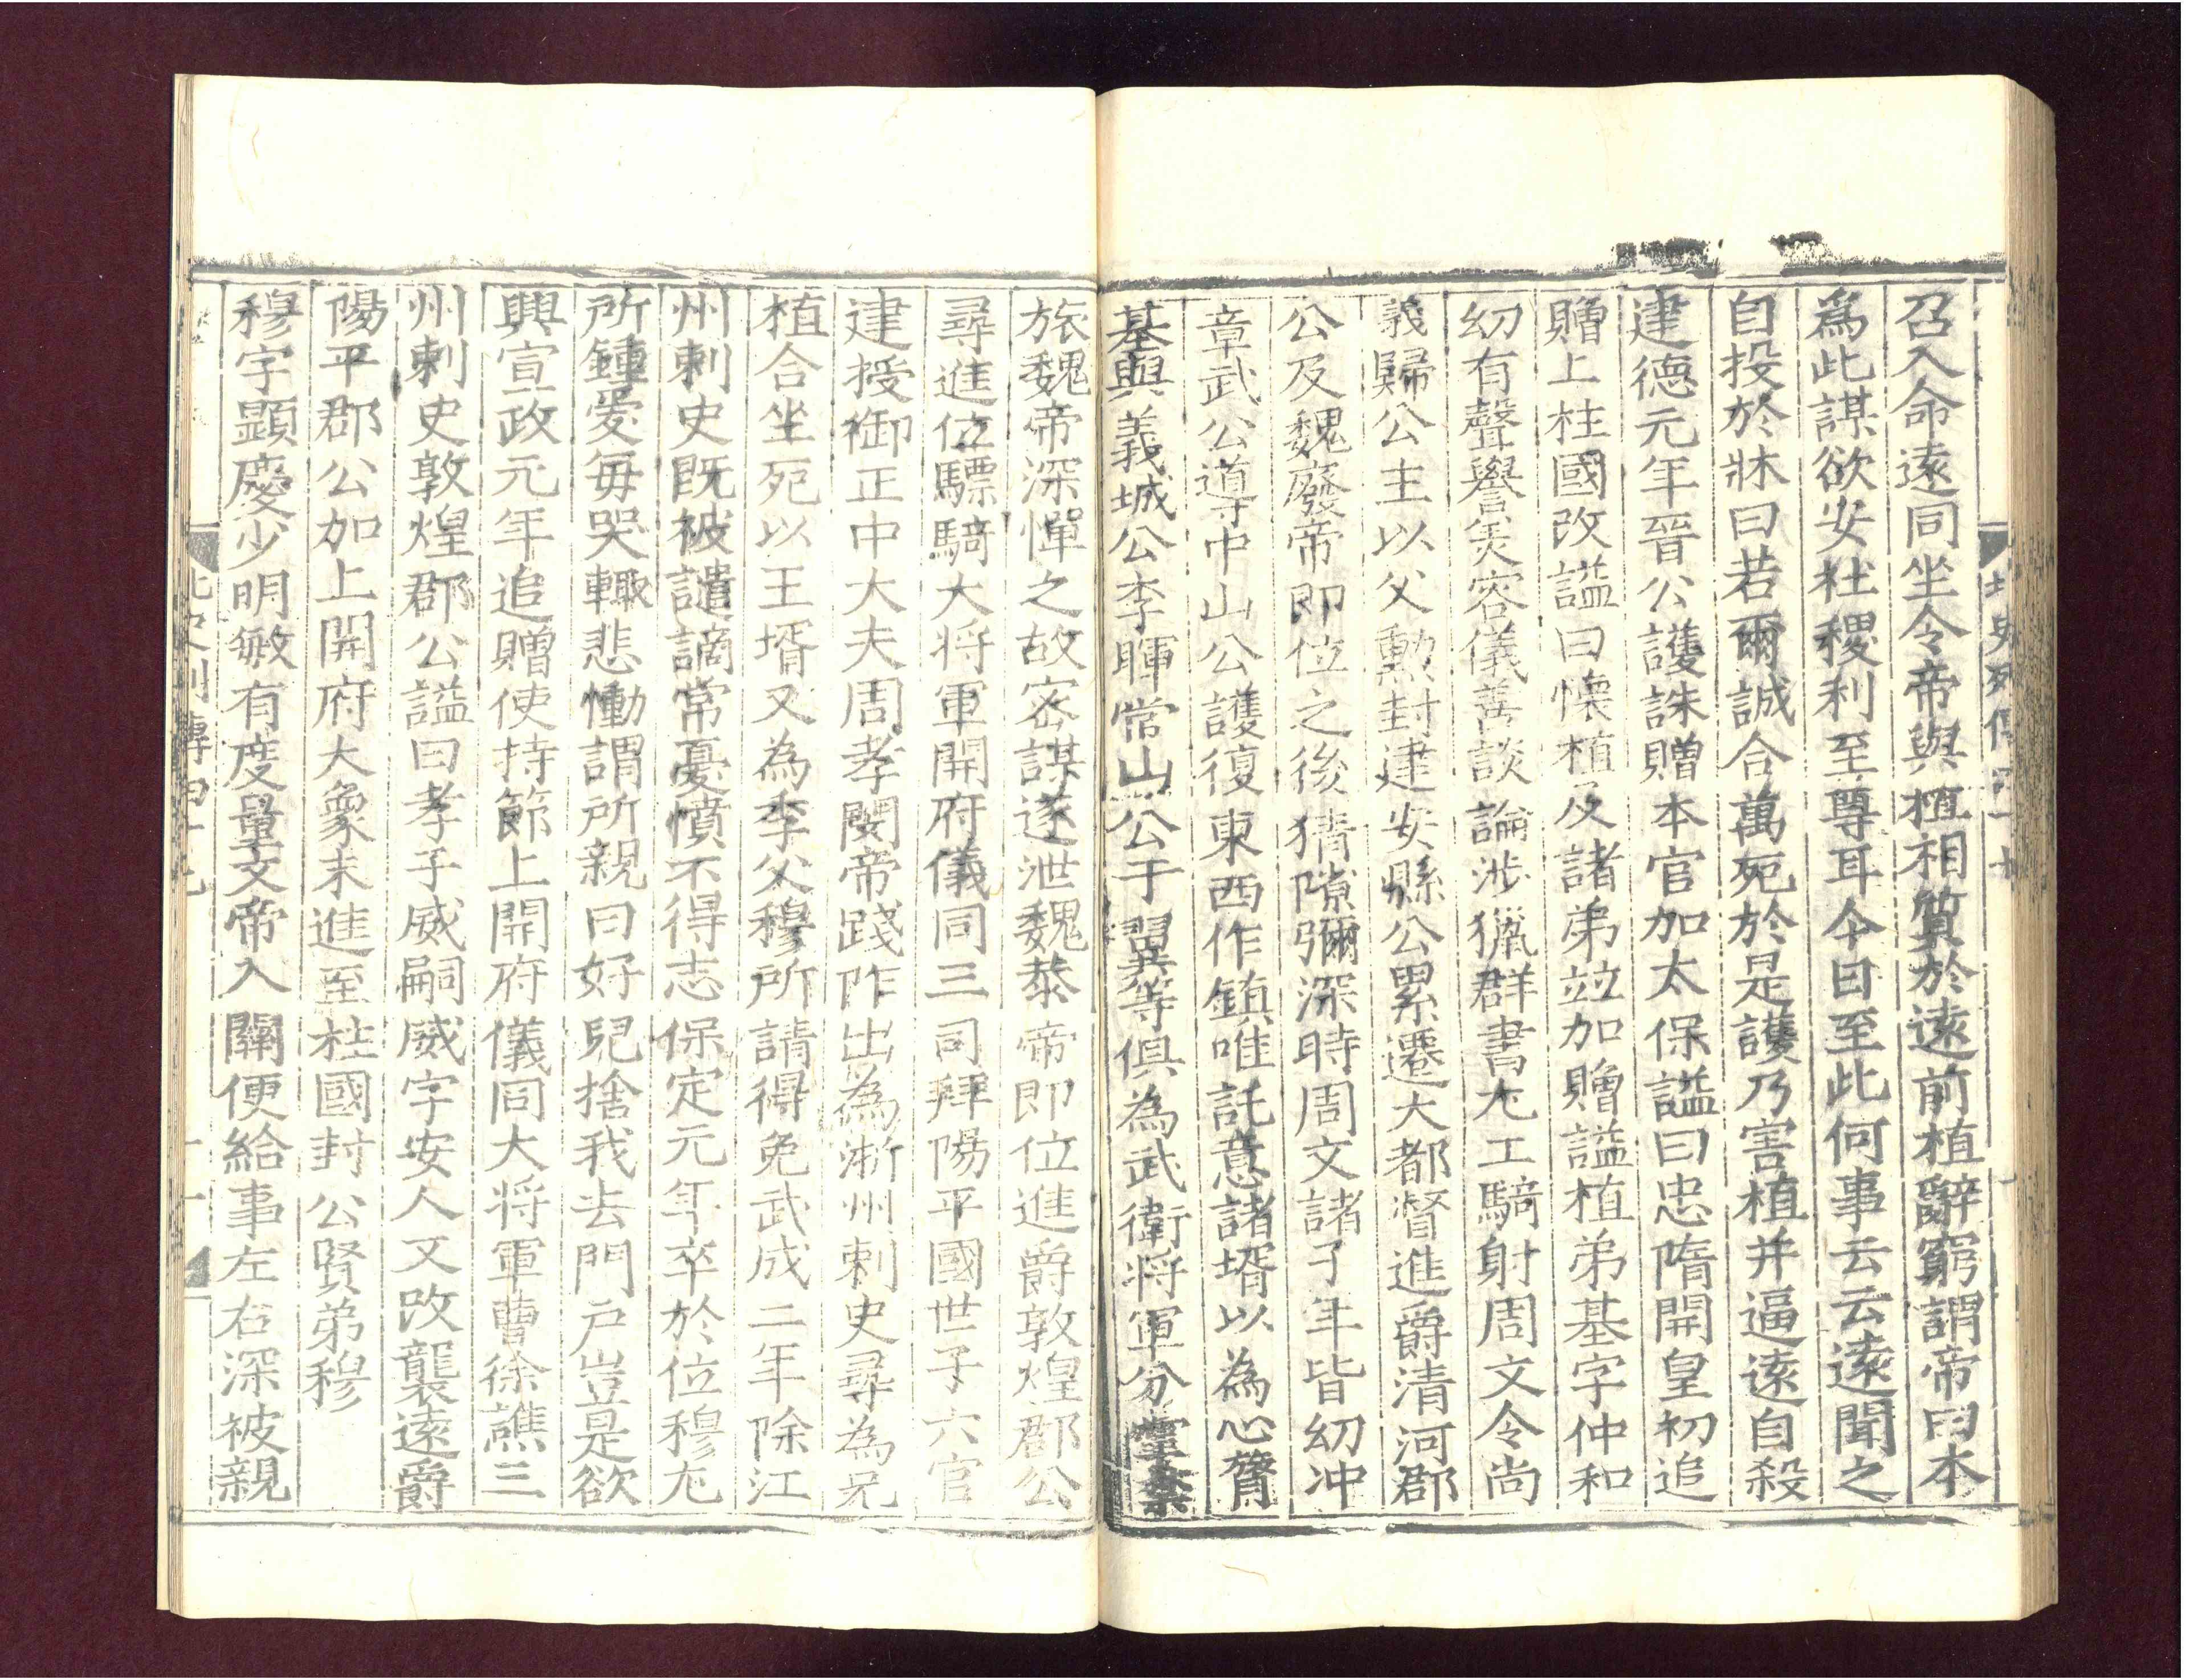 召入命遠同坐令帝與植相質於遠前植辭窮謂帝曰本
爲此謀欲安社稷利至尊耳今日至此何事云云遠聞之
自投於牀曰若爾誠合萬死於是護乃害植并逼遠自殺
建德元年晉公護誅贈本官加太保謚曰忠隋開皇初追
贈上柱國改謚曰懷植及諸弟竝加贈謚植弟基字仲和
幼有聲譽美容儀善談論涉獵群書尤工騎射周文令尚
義歸公主以父勲封建安縣公累遷大都督進爵清河郡
公及魏廢帝即位之後猜隙彌深時周文諸子年皆幼冲
章武公導中山公護復東西作鎮唯託意諸壻以為心膂
基與義城公李暉常山公于翼等俱為武衛将軍分掌禁
旅魏帝深憚之故密謀遂泄魏恭帝即位進爵敦煌郡公
尋進位驃騎大将軍開府儀同三司拜陽平國世子六官
建授御正中大夫周孝閔帝踐阼出為淅州刺史尋為兄
植合坐死以王壻又為季父穆所請得免武成二年除江
州刺史既被譴謫常憂憤不得志保定元年卒於位穆尤
所鍾愛每哭輙悲慟謂所親曰好兒捨我去門戶豈是欲
興宣政元年追贈使持節上開府儀同大将軍曹徐譙三
州刺史敦煌郡公謚曰孝子威嗣威字安人又改襲遠爵
陽平郡公加上開府大象末進至柱國封公賢弟穆
穆字顯慶少明敏有度量文帝入關便給事左右深被親
北史列傳四十七